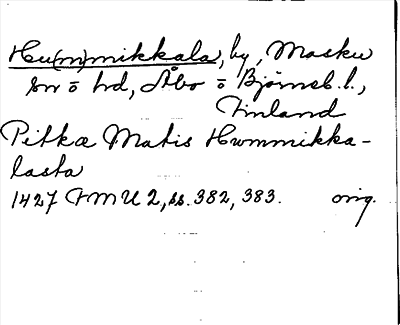 Hu(m)mikkala, by, Masku
sn o hd, Åbo o Björneb. l.,
Finland
Pitkæ Matis Hummikka-
lasta
1427 FMU 2, ss. 382, 383. orig.